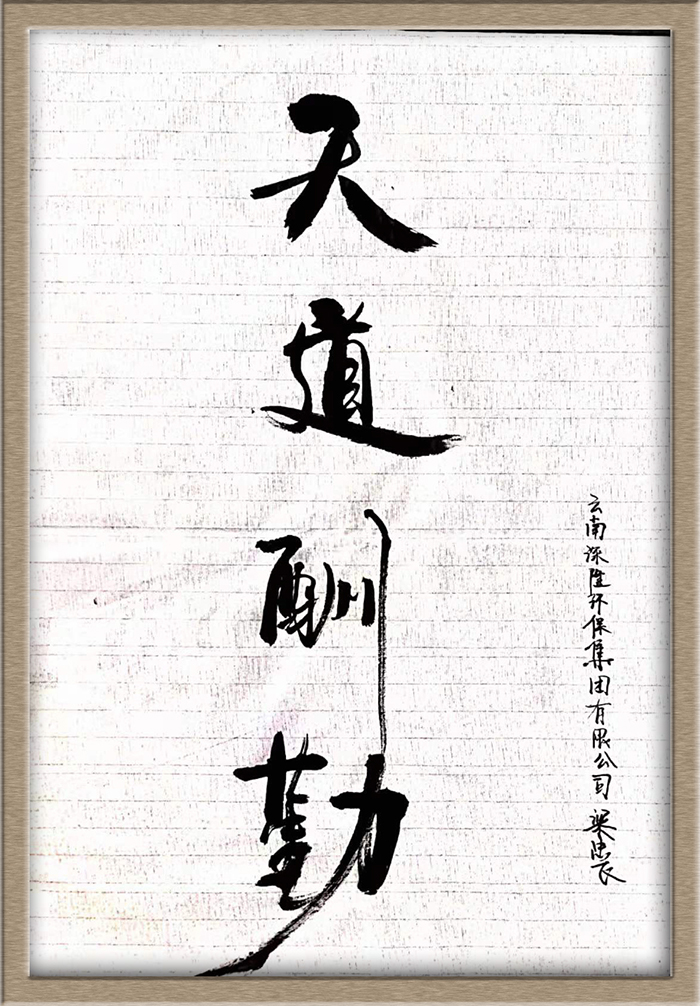 天道酬勤
云南深隆环保集团有限公司 梁忠